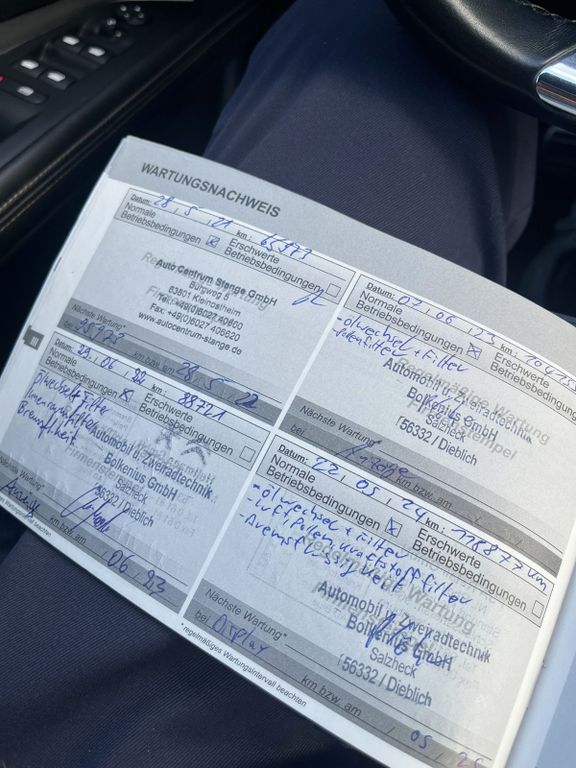 WARTUNGSNACHWEIS
Datum: 28, 5, 21 km: 65973
Normale Erschwerte
Betriebsbedingungen Betriebsbedingungen
Auto Centrum Stange GmbH
Burgweg 5
63801 Kleinostheim
Tel: +49(0)6027 40600
Fax: +49(0)6027 406620
www.autocentrum-stange.de
Nächste Wartung*
bei 95973 km bzw. am 28, 5, 22
Datum: 07, 06, 23 km:
Normale Erschwerte
Betriebsbedingungen Betriebsbedingungen
- Ölwechsel + Filter
- Pollenfilter
Automobil u. Zweiradtechnik
Bolkenius GmbH
Salzheck
56332 / Dieblich
Nächste Wartung*
bei km bzw. am
23, 06, 22 km: 88721
Normale Erschwerte
Betriebsbedingungen Betriebsbedingungen
Ölwechsel + Filter
Automobil u. Zweiradtechnik
Bolkenius GmbH
Salzheck
56332 / Dieblich
Nächste Wartung*
km bzw. am 06, 23
Datum: 22, 05, 24 km: 118877 km
Normale Erschwerte
Betriebsbedingungen Betriebsbedingungen
- Ölwechsel + Filter
- Luft, Pollen, Kraftstofffilter
Regelmäßige Wartung
Automobil u. Zweiradtechnik
Bolkenius GmbH
Salzheck
56332 / Dieblich
Nächste Wartung*
bei Display km bzw. am 05,
* regelmäßiges Wartungsintervall beachten
III